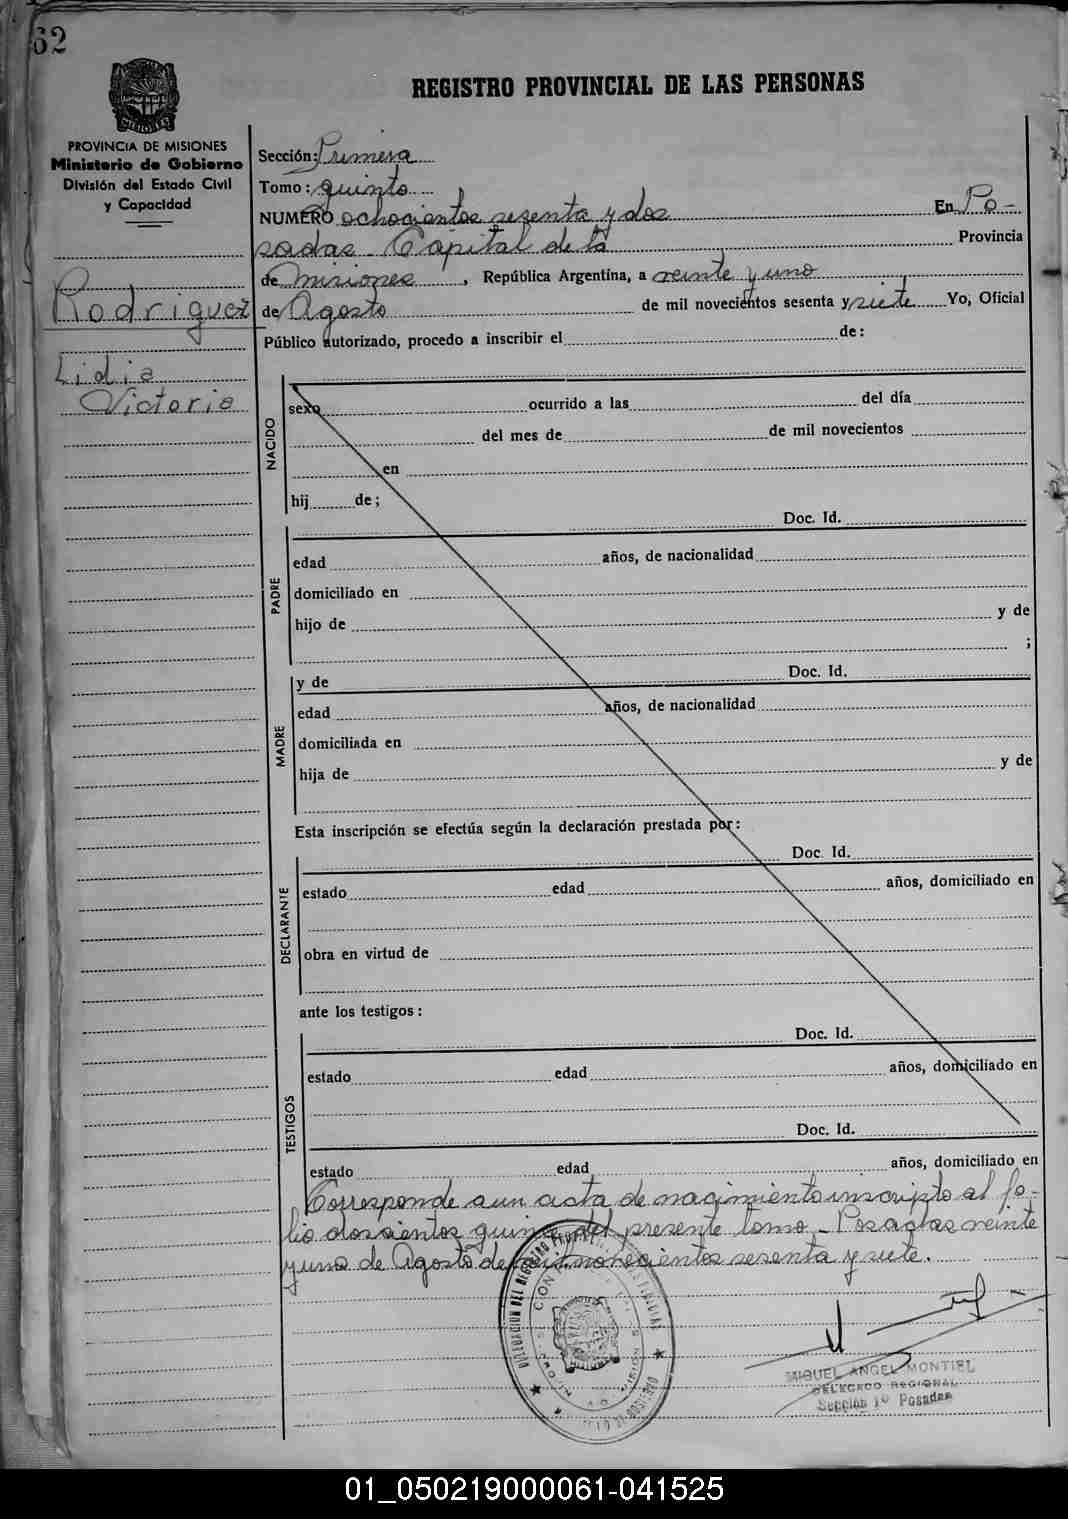 62
REGISTRO PROVINCIAL DE LAS PERSONAS
PROVINCIA DE MISIONES
Ministerio de Gobierno
División del Estado Civil
y Capacidad
Rodriguez
Lidia
Victoria
Sección: Primera
Tomo: quinto
NUMERO ochocientos sesenta y dos En Po-
sadas Capital de la Provincia
de Misiones, República Argentina, a veinte y uno
de Agosto de mil novecientos sesenta y siete Yo, Oficial
Público autorizado, procedo a inscribir el de:
NACIDO
sexo ocurrido a las del día
del mes de de mil novecientos
en
hij de;
Doc. Id.
PADRE
edad años, de nacionalidad
domiciliado en
hijo de y de
;
MADRE
y de Doc. Id.
edad años, de nacionalidad
domiciliada en
hija de y de
Esta inscripción se efectúa según la declaración prestada por:
Doc. Id.
DECLARANTE
estado edad años, domiciliado en
obra en virtud de
ante los testigos:
Doc. Id.
TESTIGOS
estado edad años, domiciliado en
Doc. Id.
estado edad años, domiciliado en
Corresponde a un acta de nacimiento inscripto al fo-
lio doscientos quince del presente tomo - Posadas veinte
y uno de Agosto de mil novecientos sesenta y siete.
MIGUEL ANGEL MONTIEL
DELEGADO REGIONAL
Sección 1º Posadas
01_050219000061-041525